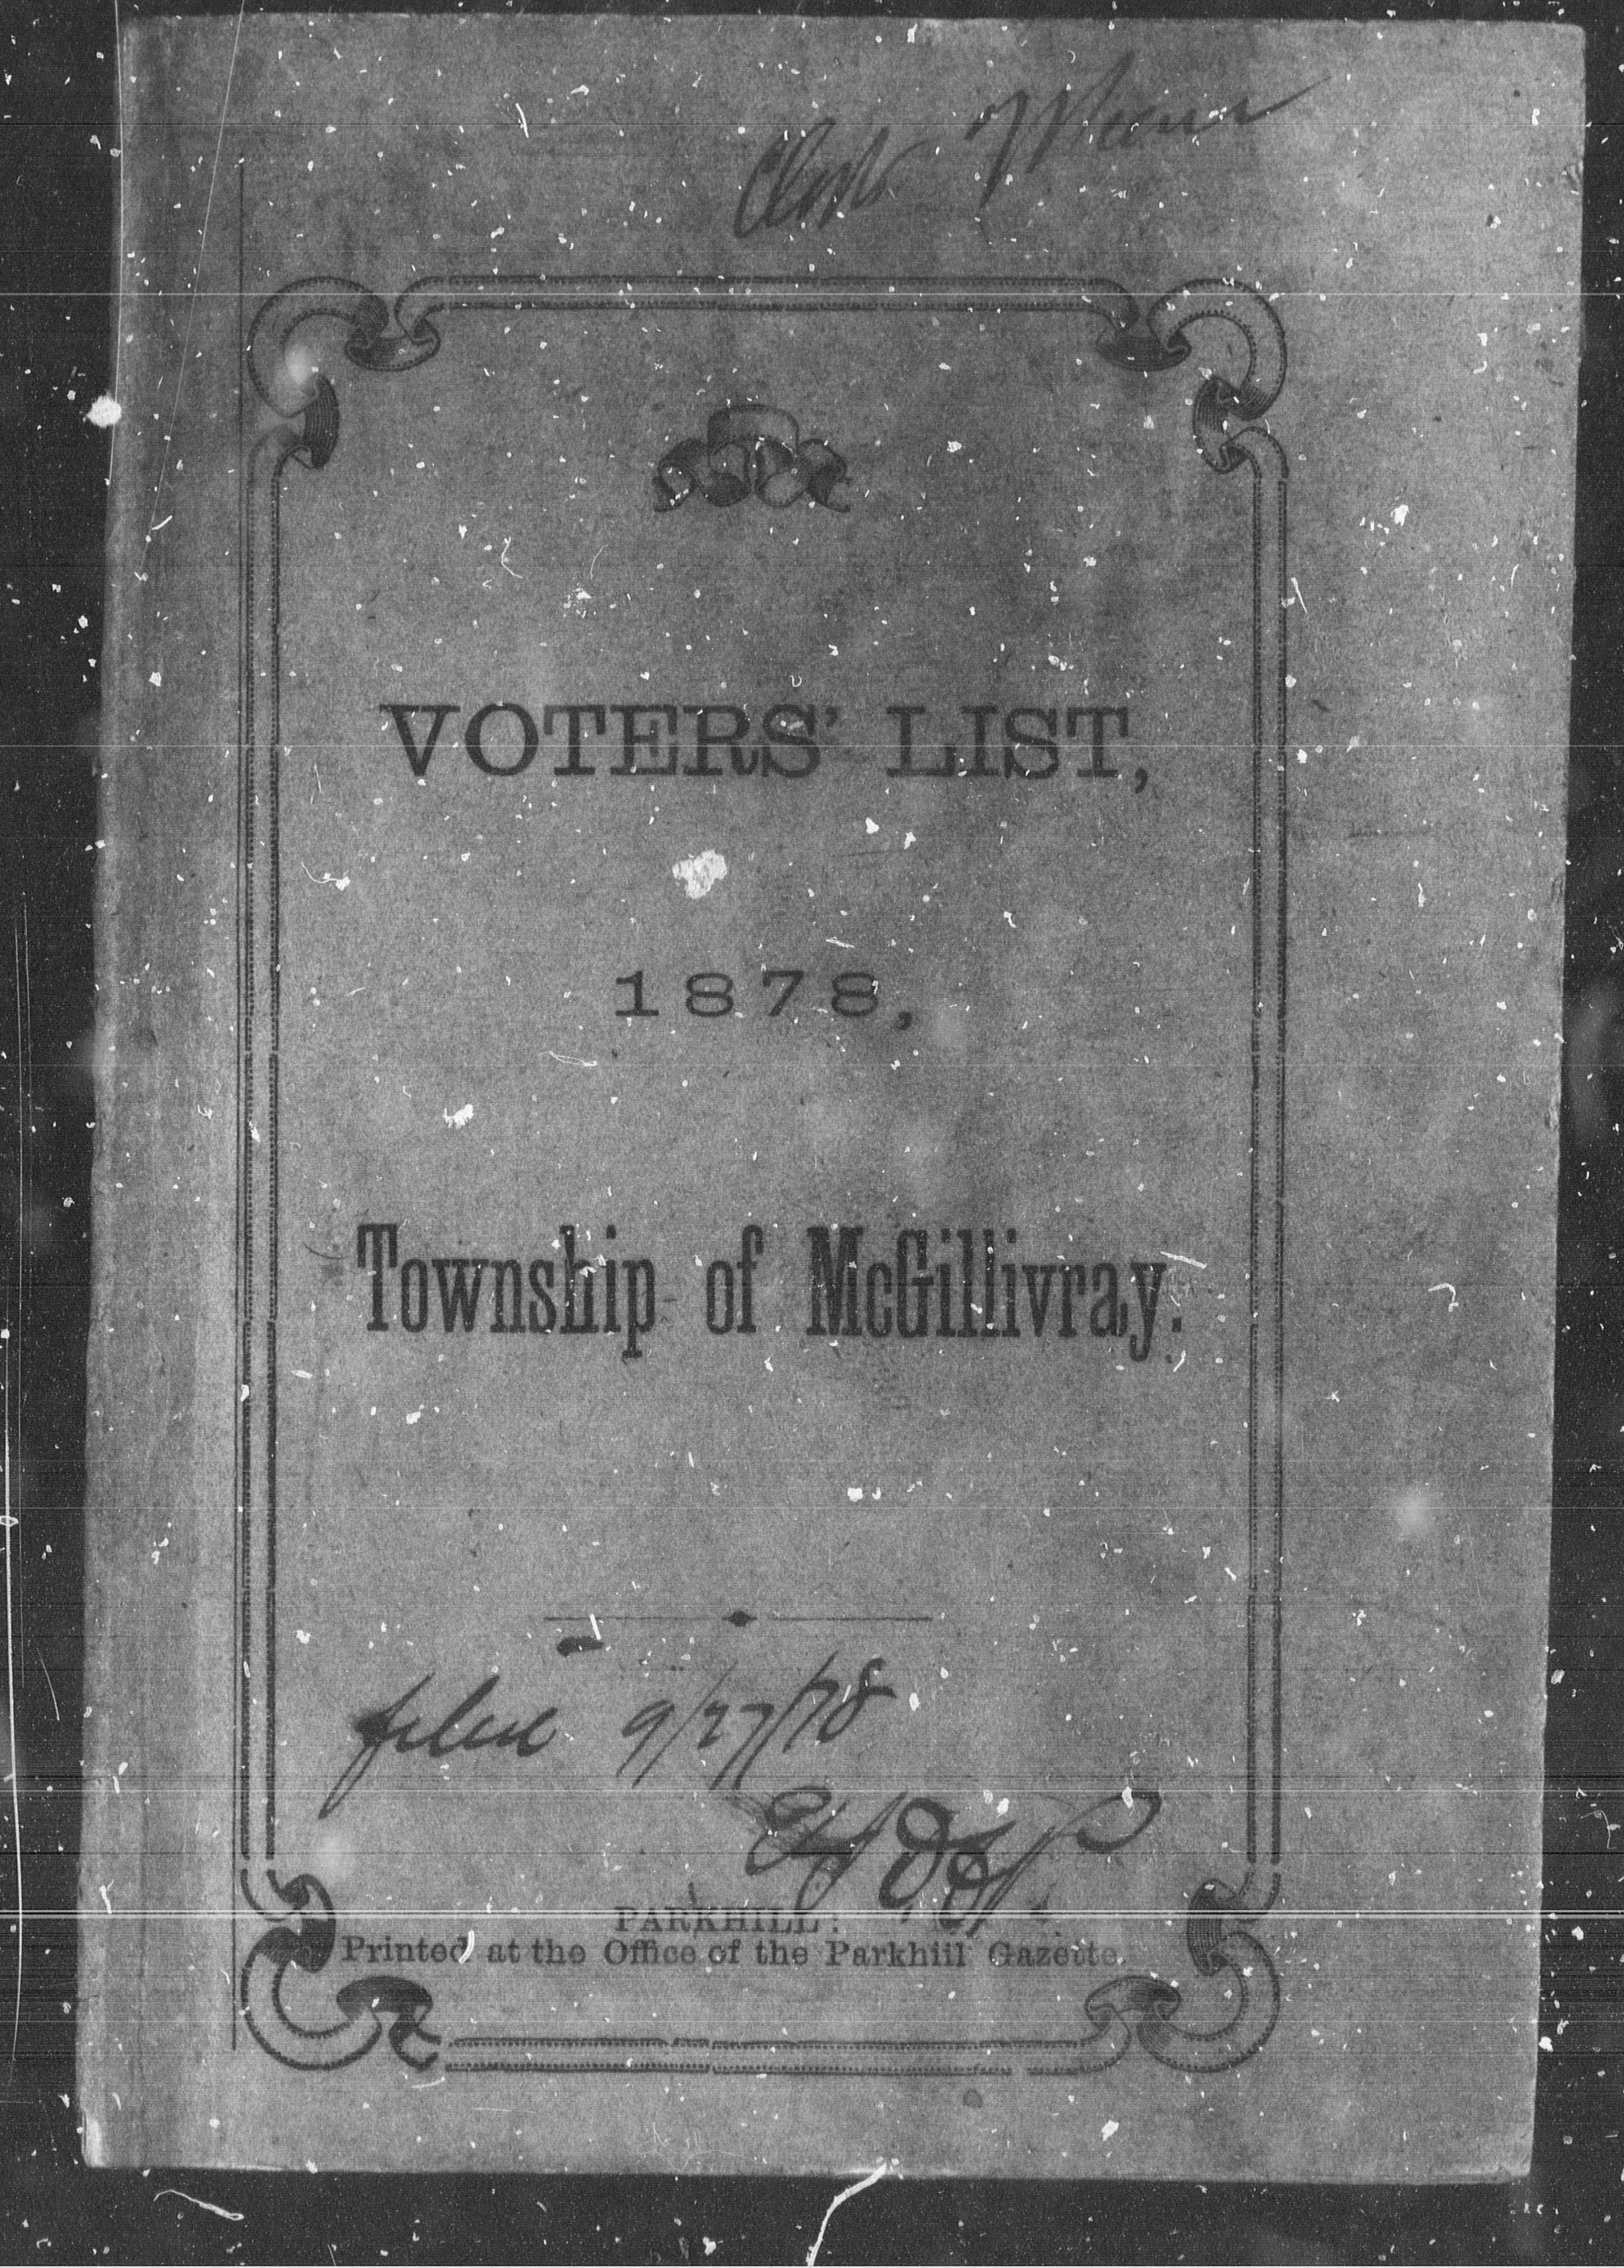 VOTERS' LIST,
1878,
Township of McGillivray.
filed 9/27/78
PARKHILL:
Printed at the Office of the Parkhill Gazette.